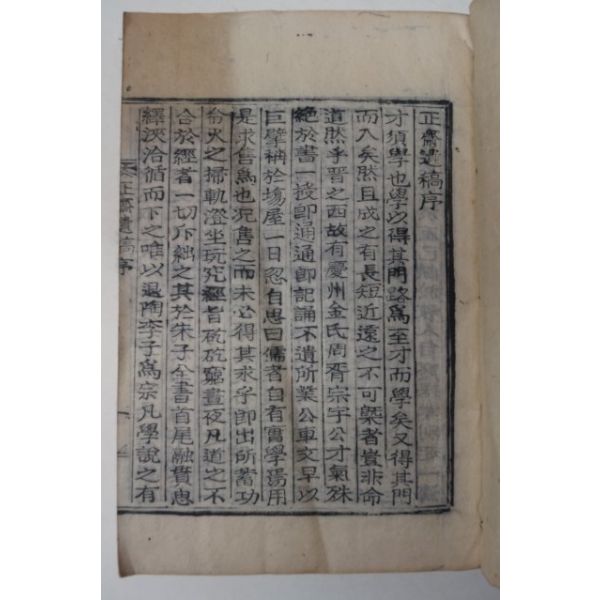 正齋遺稿序
才須學也學以得其門路爲至才而學矣又得其門
而入矣然且成之有長短近遠之不可槩者豈非命
道然乎晋之西故有慶州金氏周胥宗宇公才氣殊
絶於書一授卽通通卽記誦不遺所業公車文早以
巨擘稱於塲屋一日忽自思曰儒者自有實學焉用
是求售爲也况售之而未必得其求乎卽出所蓄功
令火之掃軌澄坐玩究經旨矻矻窮晝夜凡道之不
合於經者一切斥絀之其於朱子全書首尾融貫思
繹浹洽循而下之唯以退陶李子爲宗凡學說之有
正齋遺稿序
一